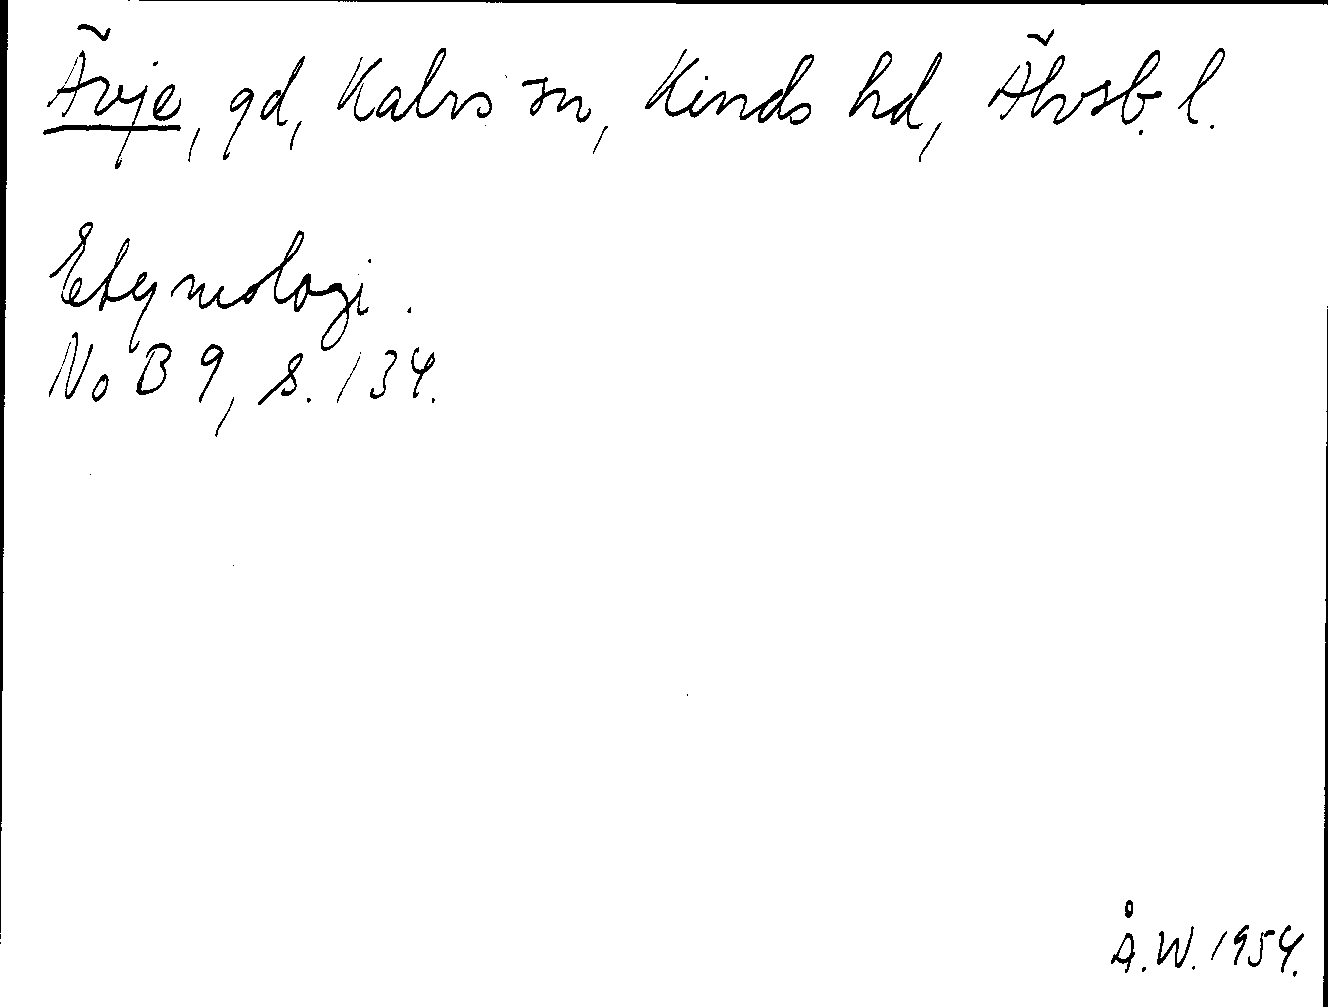 Ävje, gd, Kalvs sn, Kinds hd, Älvsb. l.
Etymologi.
NoB 9, s. 134.
Å.W. 1954.